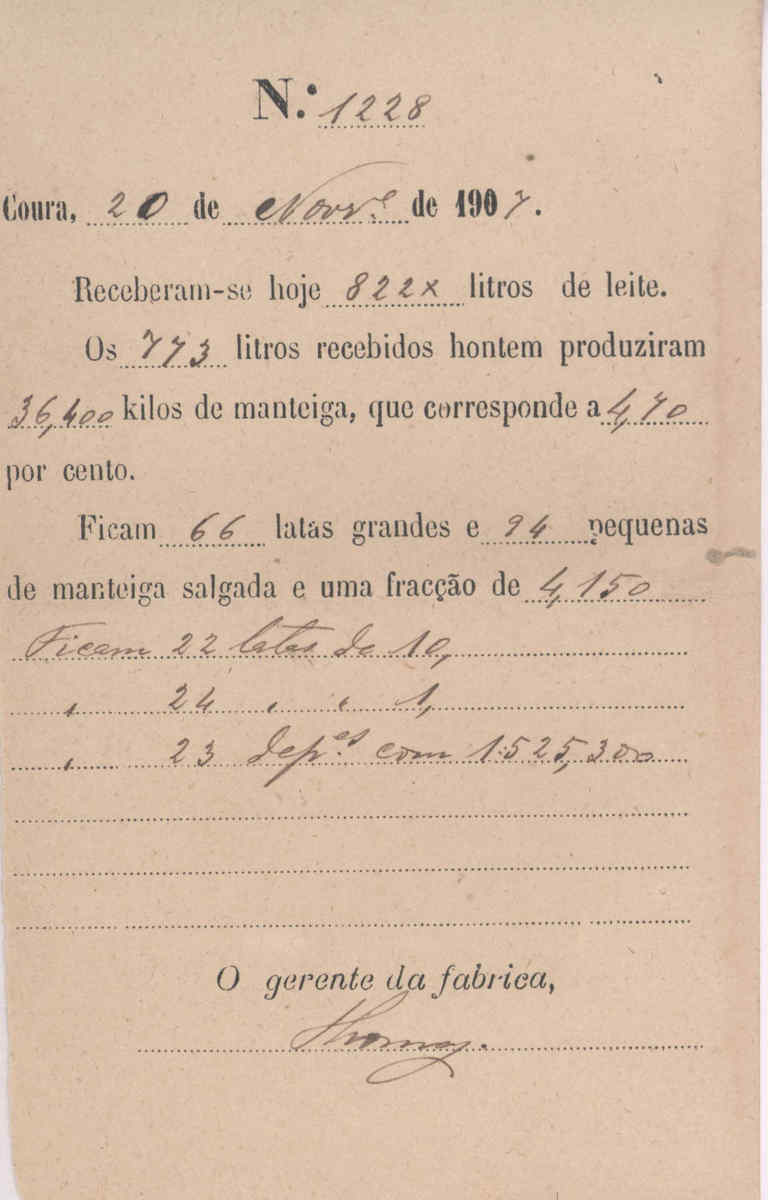 N.º 1228
Coura, 20 de Novr.e de 1907.
Receberam-se hoje 822x litros de leite.
Os 773 litros recebidos hontem produziram
36,400 kilos de manteiga, que corresponde a 4,70
por cento.
Ficam 66 latas grandes e 94 pequenas
de manteiga salgada e uma fracção de 4,150
Ficam 22 latas de 10,
" 24 " " 1,
" 23 dep.es com 1:525,300
O gerente da fabrica,
Thomaz.